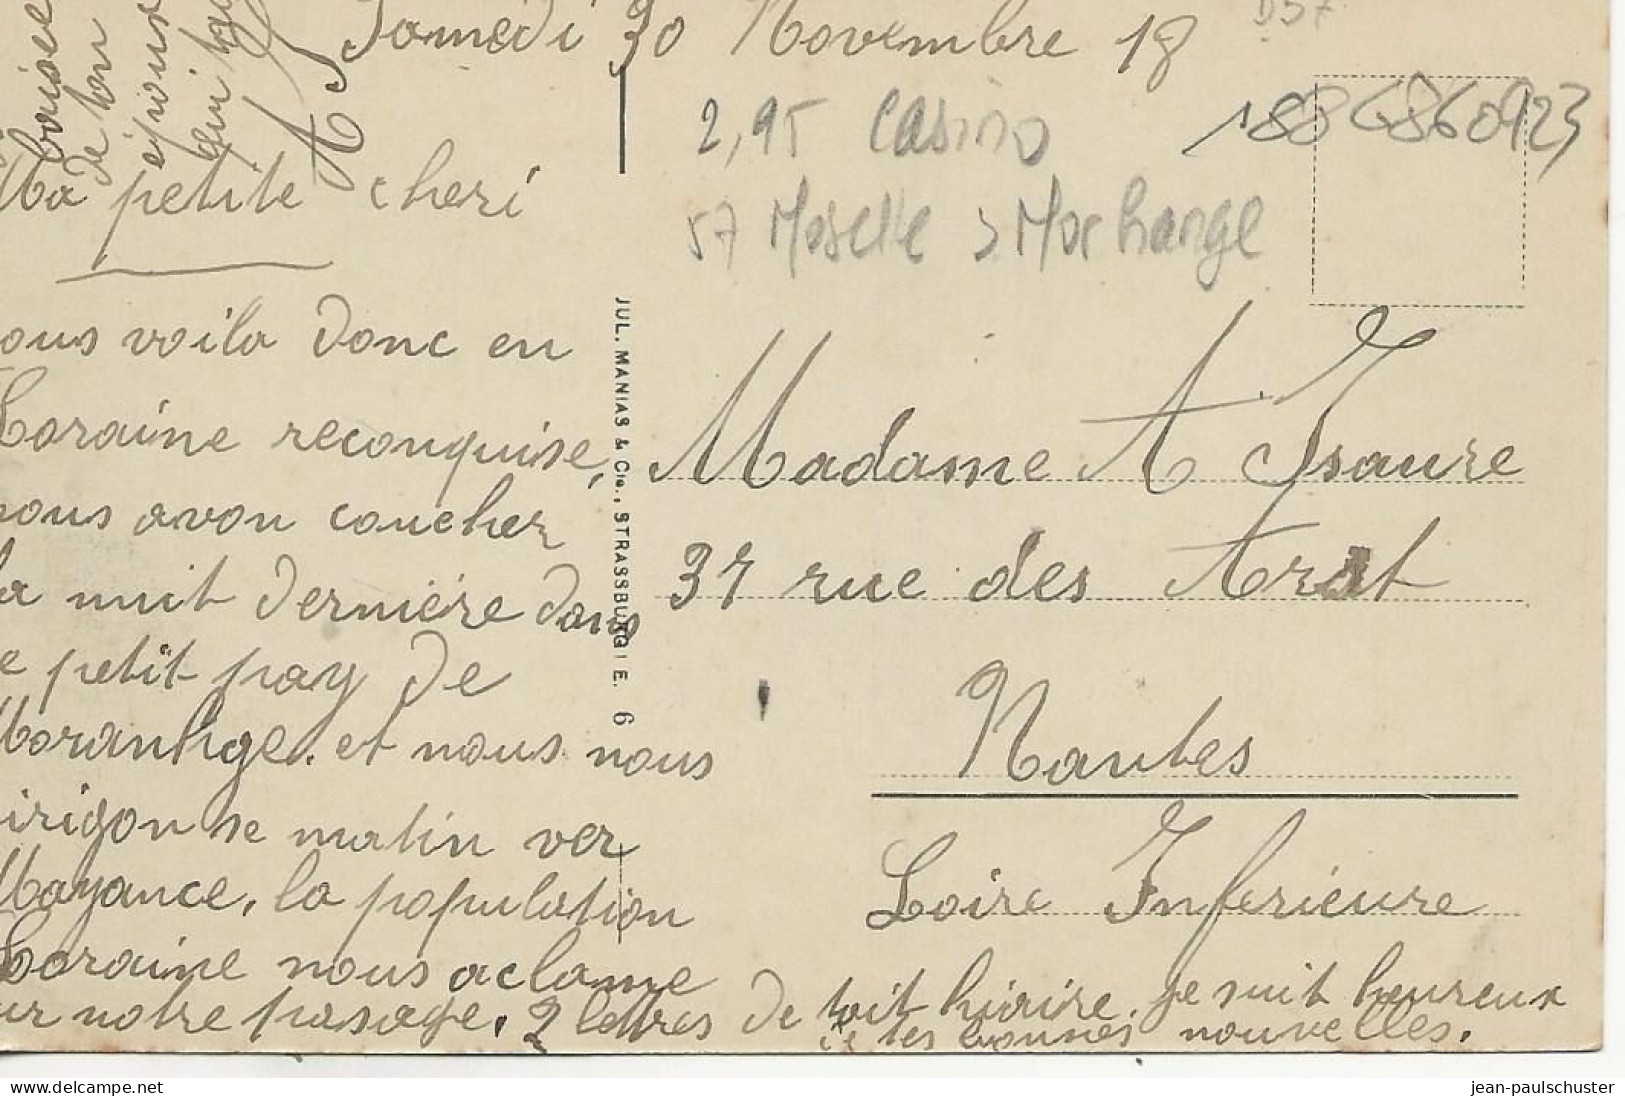 Samedi 30 Novembre 18
D57
baisers
de ton
époux
qui
A J
2,95 Casino
188 6860923
57 Moselle > Morhange
Ma petite cheri
nous voila donc en
Loraine reconquise,
nous avon coucher
la nuit dernière dans
le petit pay de
Moranhge. et nous nous
dirigon se matin ver
Mayance, la population
Loraine nous aclame
sur notre pasage. 2 lettres de toit hiaire je suit heureux
de tes bonnes nouvelles.
JUL. MANIAS & Cie., STRASSBURG I E. 6
Madame A Isaure
37 rue des Arat
Nantes
Loire Inferieure
delcampe.net
jean-paulschuster